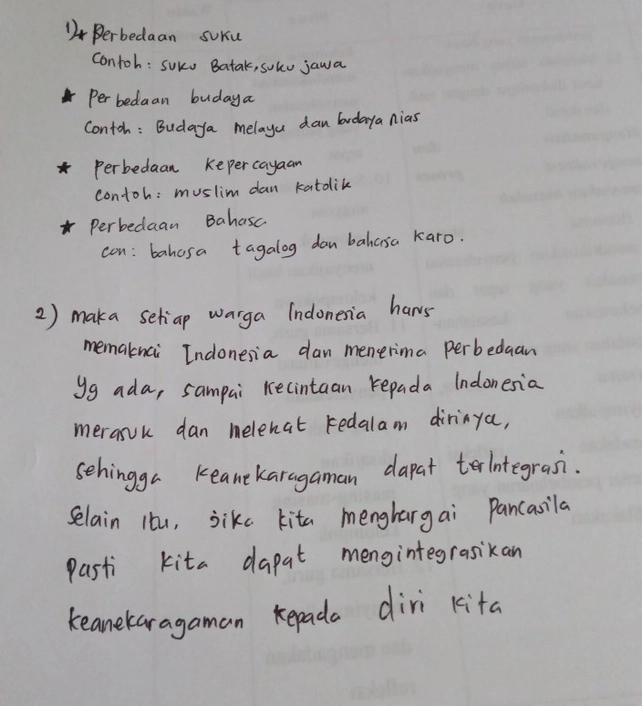 1) ★ Perbedaan suku
Contoh: suku Batak, suku jawa
★ Perbedaan budaya
Contoh: Budaya Melayu dan budaya nias
★ Perbedaan Kepercayaan
Contoh: muslim dan katolik
★ Perbedaan Bahasa
con: bahasa tagalog dan bahasa karo.
2) maka setiap warga Indonesia harus
memaknai Indonesia dan menerima perbedaan
yg ada, sampai kecintaan kepada Indonesia
merasuk dan melekat kedalam dirinya,
sehingga keanekaragaman dapat terintegrasi.
Selain itu, jika kita menghargai Pancasila
pasti kita dapat mengintegrasikan
keanekaragaman kepada diri kita